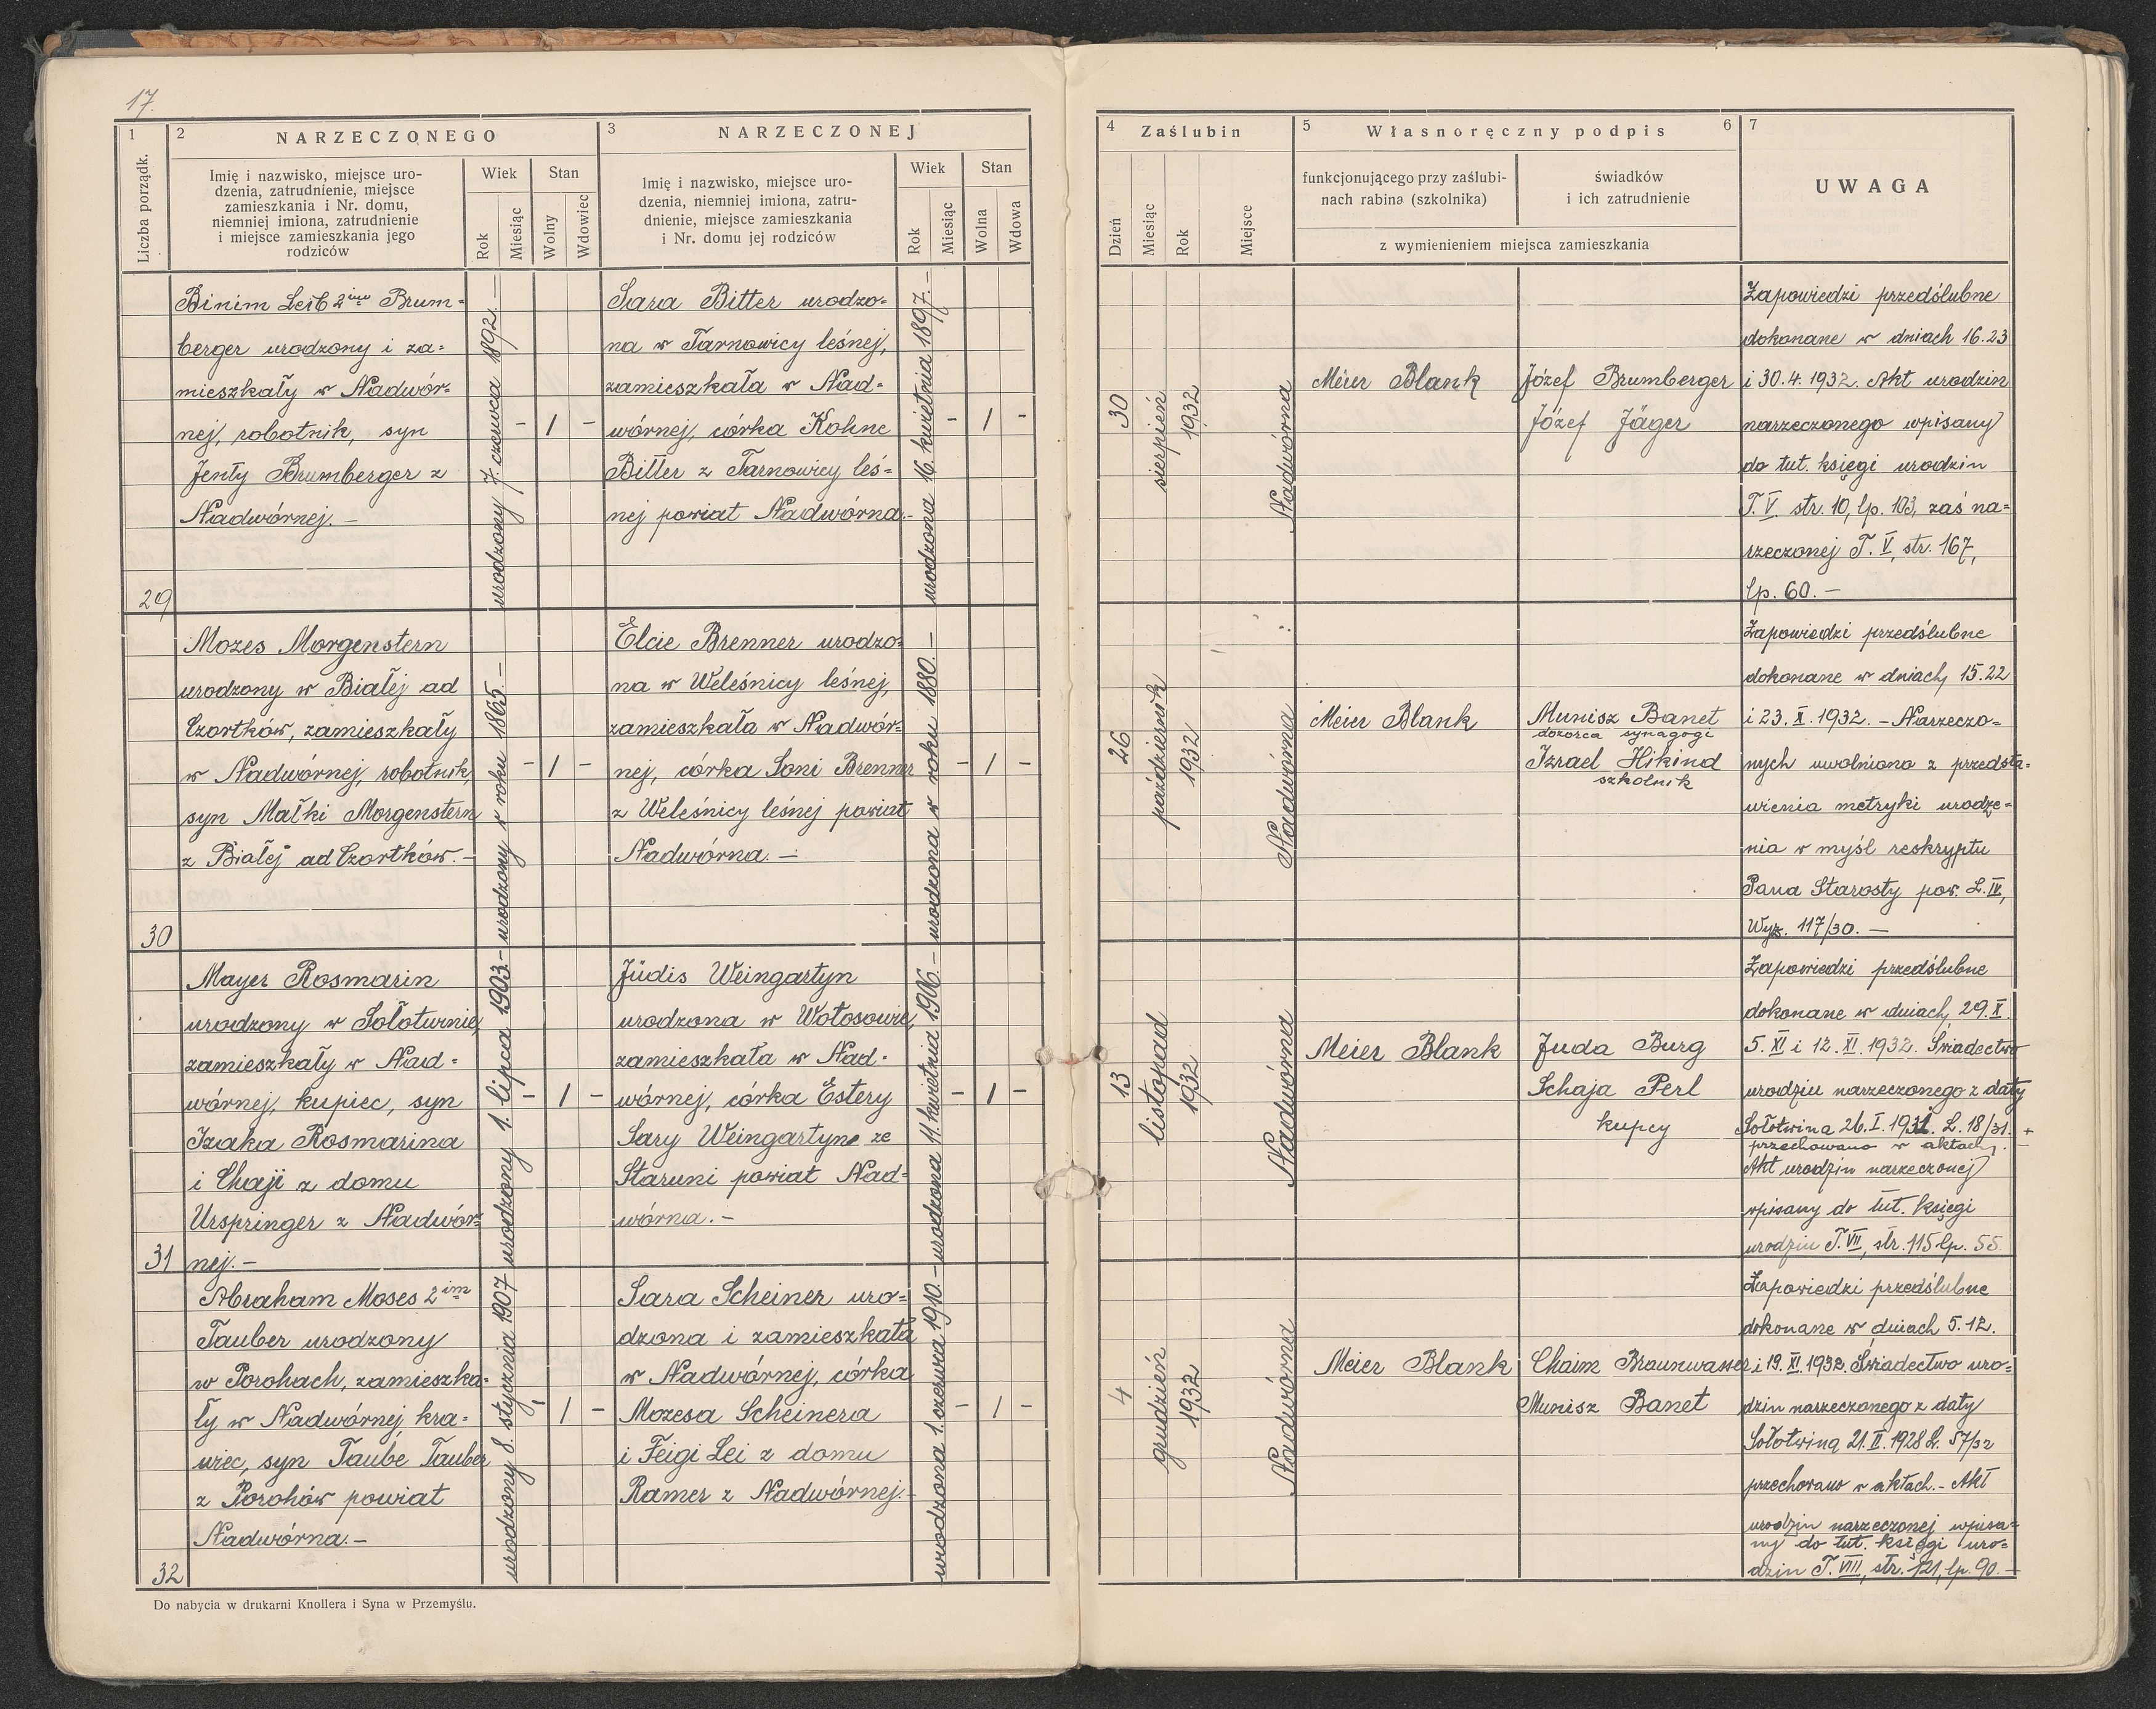 17.
1
2
NARZECZONEGO
3
NARZECZONEJ
Liczba porządk.
Imię i nazwisko, miejsce uro-
dzenia, zatrudnienie, miejsce
zamieszkania i Nr. domu,
niemniej imiona, zatrudnienie
i miejsce zamieszkania jego
rodziców
Wiek
Stan
Rok
Miesiąc
Wolny
Wdowiec
Imię i nazwisko, miejsce uro-
dzenia, niemniej imiona, zatru-
dnienie, miejsce zamieszkania
i Nr. domu jej rodziców
Wiek
Stan
Rok
Miesiąc
Wolna
Wdowa
4
Zaślubin
5
Własnoręczny podpis
6
7
Dzień
Miesiąc
Rok
Miejsce
funkcjonującego przy zaślubi-
nach rabina (szkolnika)
świadków
i ich zatrudnienie
z wymienieniem miejsca zamieszkania
UWAGA
29
Binim Leib 2im Brum=
berger urodzony i za=
mieszkały w Nadwór=
nej, robotnik, syn
Jenty Brumberger z
Nadwórnej. -
urodzony 7. czerwca 1892. -
- 1 -
Sara Bitter urodzo=
na w Tarnowicy leśnej,
zamieszkała w Nad=
wórnej, córka Kohne
Bitter z Tarnowicy leś=
nej powiat Nadwórna.-
urodzona 16. kwietnia 1897. -
- 1 -
30
sierpień
1932
Nadwórna
Meier Blank
Józef Brumberger
Józef Jäger
Zapowiedzi przedślubne
dokonane w dniach 16. 23
i 30. 4. 1932. Akt urodzin
narzeczonego wpisany
do tut. księgi urodzin
T. V. str. 10, lp. 103, zaś na=
rzeczonej T. V, str. 167,
lp. 60. -
30
Mozes Morgenstern
urodzony w Białej ad
Czortków, zamieszkały
w Nadwórnej, robotnik,
syn Małki Morgenstern
z Białej ad Czortków. -
urodzony w roku 1865. -
- 1 -
Elcie Brenner urodzo=
na w Weleśnicy leśnej,
zamieszkała w Nadwór=
nej, córka Soni Brenner
z Weleśnicy leśnej powiat
Nadwórna. -
urodzona w roku 1880. -
- 1 -
26
październik
1932
Nadwórna
Meier Blank
Munisz Banet
dozorca synagogi
Izrael Hikind
szkolnik
Zapowiedzi przedślubne
dokonane w dniach 15. 22
i 23. X. 1932. - Narzeczo=
nych uwolniono z przedsta=
wienia metryki urodze=
nia w myśl reskryptu
Pana Starosty pow. L. IV,
Wyz. 117/30. -
31
Mayer Rosmarin
urodzony w Sołotwinie,
zamieszkały w Nad=
wórnej, kupiec, syn
Izaka Rosmarina
i Chaji z domu
Urspringer z Nadwór=
nej. -
urodzony 1. lipca 1903. -
- 1 -
Jüdis Weingartyn
urodzona w Wołosowie,
zamieszkała w Nad=
wórnej, córka Estery
Sary Weingartyn ze
Staruni powiat Nad=
wórna. -
urodzona 11. kwietnia 1906. -
- 1 -
13
listopad
1932
Nadwórna
Meier Blank
Juda Burg
Schaja Perl
kupcy
Zapowiedzi przedślubne
dokonane w dniach 29. X.
5. XI i 12. XI. 1932. Świadectwo
urodzin narzeczonego z daty
Sołotwina 26. I. 1931. L. 18/31.
przechowano w aktach,
Akt urodzin narzeczonej
wpisany do tut. księgi
urodzin T. VII, str. 115 lp. 55.
32
Abraham Moses 2im
Tauber urodzony
w Porohach, zamieszka=
ły w Nadwórnej, kra=
wiec, syn Taube Tauber
z Porohów powiat
Nadwórna. -
urodzony 8. stycznia 1907
- 1 -
Sara Scheiner uro=
dzona i zamieszkała
w Nadwórnej, córka
Mozesa Scheinera
i Feigi Lei z domu
Ramer z Nadwórnej. -
urodzona 1. czerwca 1910. -
- 1 -
4
grudzień
1932
Nadwórna
Meier Blank
Chaim Braunwasser
Munisz Banet
Zapowiedzi przedślubne
dokonane w dniach 5. 12.
i 19. XI. 1932. Świadectwo uro=
dzin narzeczonego z daty
Sołotwina 21. II. 1928 L. 57/32
przechowano w aktach. - Akt
urodzin narzeczonej wpisa=
ny do tut. księgi uro=
dzin T. VIII, str. 121, lp. 90. -
Do nabycia w drukarni Knollera i Syna w Przemyślu.